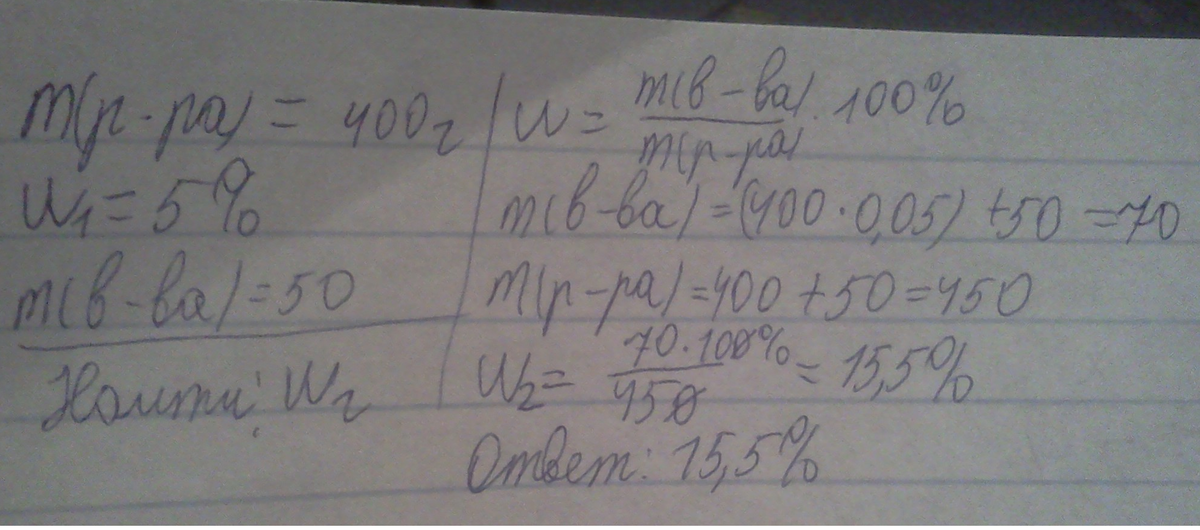 m(р-ра) = 400г
W₁ = 5%
m(в-ва) = 50
Найти: W₂
W = m(в-ва) / m(р-ра) · 100%
m(в-ва) = (400 · 0,05) + 50 = 70
m(р-ра) = 400 + 50 = 450
W₂ = 70 · 100% / 450 = 15,5%
Ответ: 15,5%